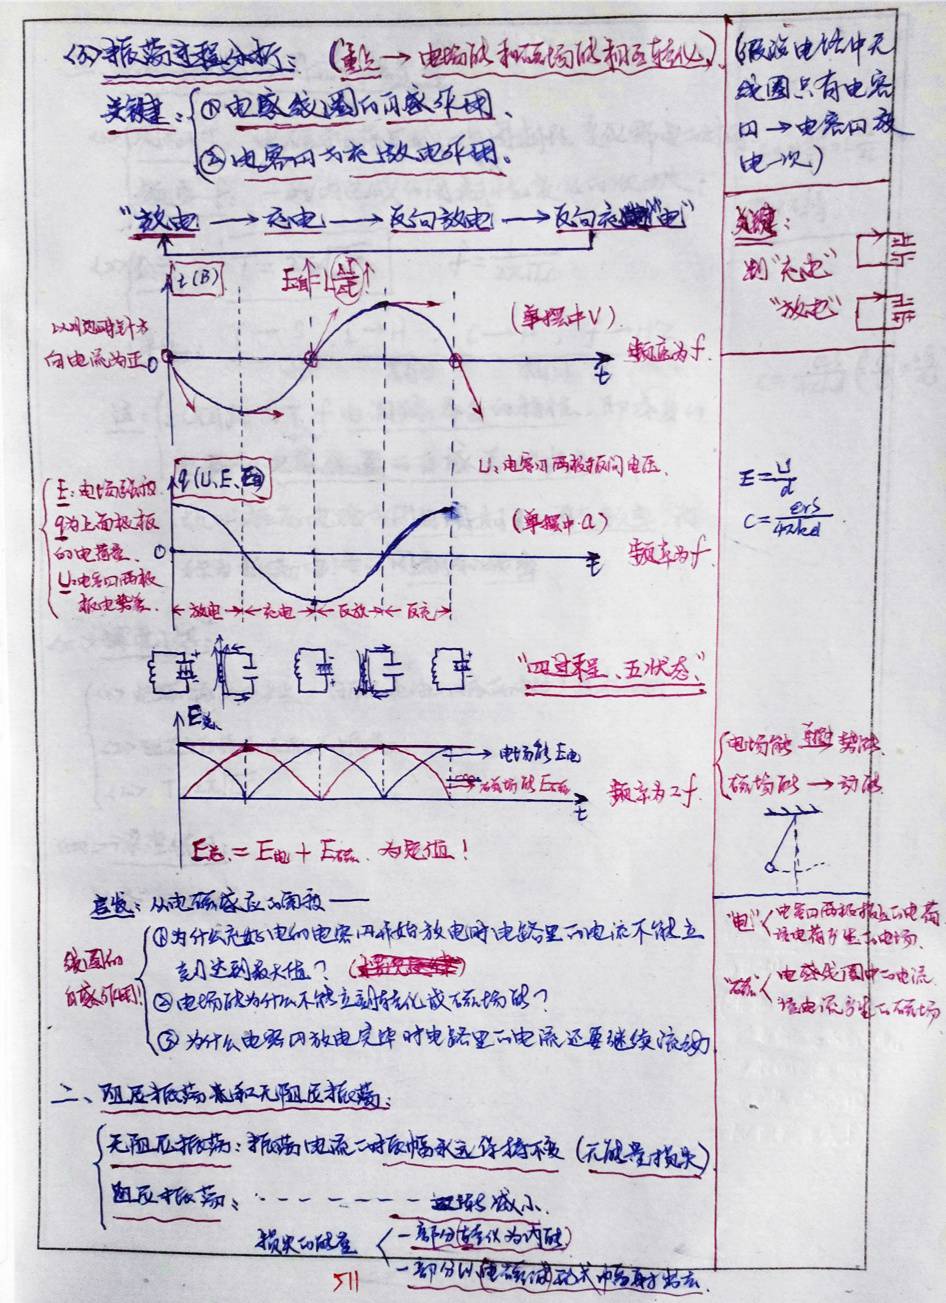 (5)振荡过程分析:(重点→电场能和磁场能相互转化)
关键:①电感线圈的自感作用.
②电容器的充放电作用.
"放电→充电→反向放电→反向充电"
i(B)
E自=L ΔI/Δt
(单摆中V)
以顺时针方
向电流为正
0
t
频率为f.
q(U、E、E电)
U:电容器两极板间电压.
(单摆中a)
E:电场强度.
q为上面极板
的电荷量.
U:电容器两极
板电势差.
0
t
频率为f
放电 充电 反放 反充
"四过程、五状态"
E总
电场能E电
磁场能E磁
频率为2f.
t
E总=E电+E磁 为定值!
启发:从电磁感应的角度——
线圈的
自感作用!
①为什么充好电的电容器开始放电时电路里的电流不能立
刻达到最大值?
②电场能为什么不能立刻转化成磁场能?
③为什么电容器放电完毕时电路里的电流还要继续流动
二、阻尼振荡和无阻尼振荡:
无阻尼振荡:振荡电流的振幅永远保持不变(无能量损失)
阻尼振荡:- - - - - - 逐渐减小.
损失的能量
一部分转化为内能
一部分以电磁波形式向外辐射出去
511
(假设电路中无
线圈只有电容
器→电容器放
电一次)
关键:
判"充电"
"放电"
E=U/d
C=εrS/4πkd
电场能→势能
磁场能→动能
"电"
电容器两极板上的电荷
该电荷产生的电场.
"磁"
电感线圈中的电流
该电流产生的磁场